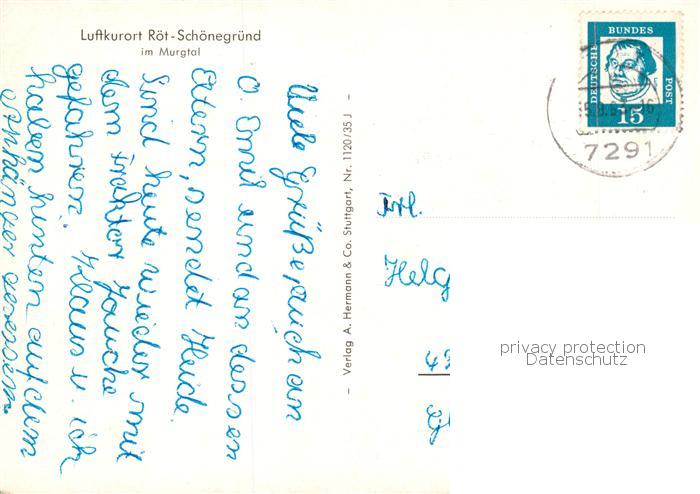 Luftkurort Röt-Schönegründ
im Murgtal
Viele Grüße auch an
O. Emil und an dessen
Eltern, sendet Heide.
Sind heute wieder mit
dem Traktor Jauche
gefahren. Klaus u. ich
haben hinten auf dem
anhänger gesessen.
– Verlag A. Hermann & Co. Stuttgart, Nr. 1120/35 J –
DEUTSCHE
BUNDES
POST
15
7291
Frl.
Helg
privacy protection
Datenschutz